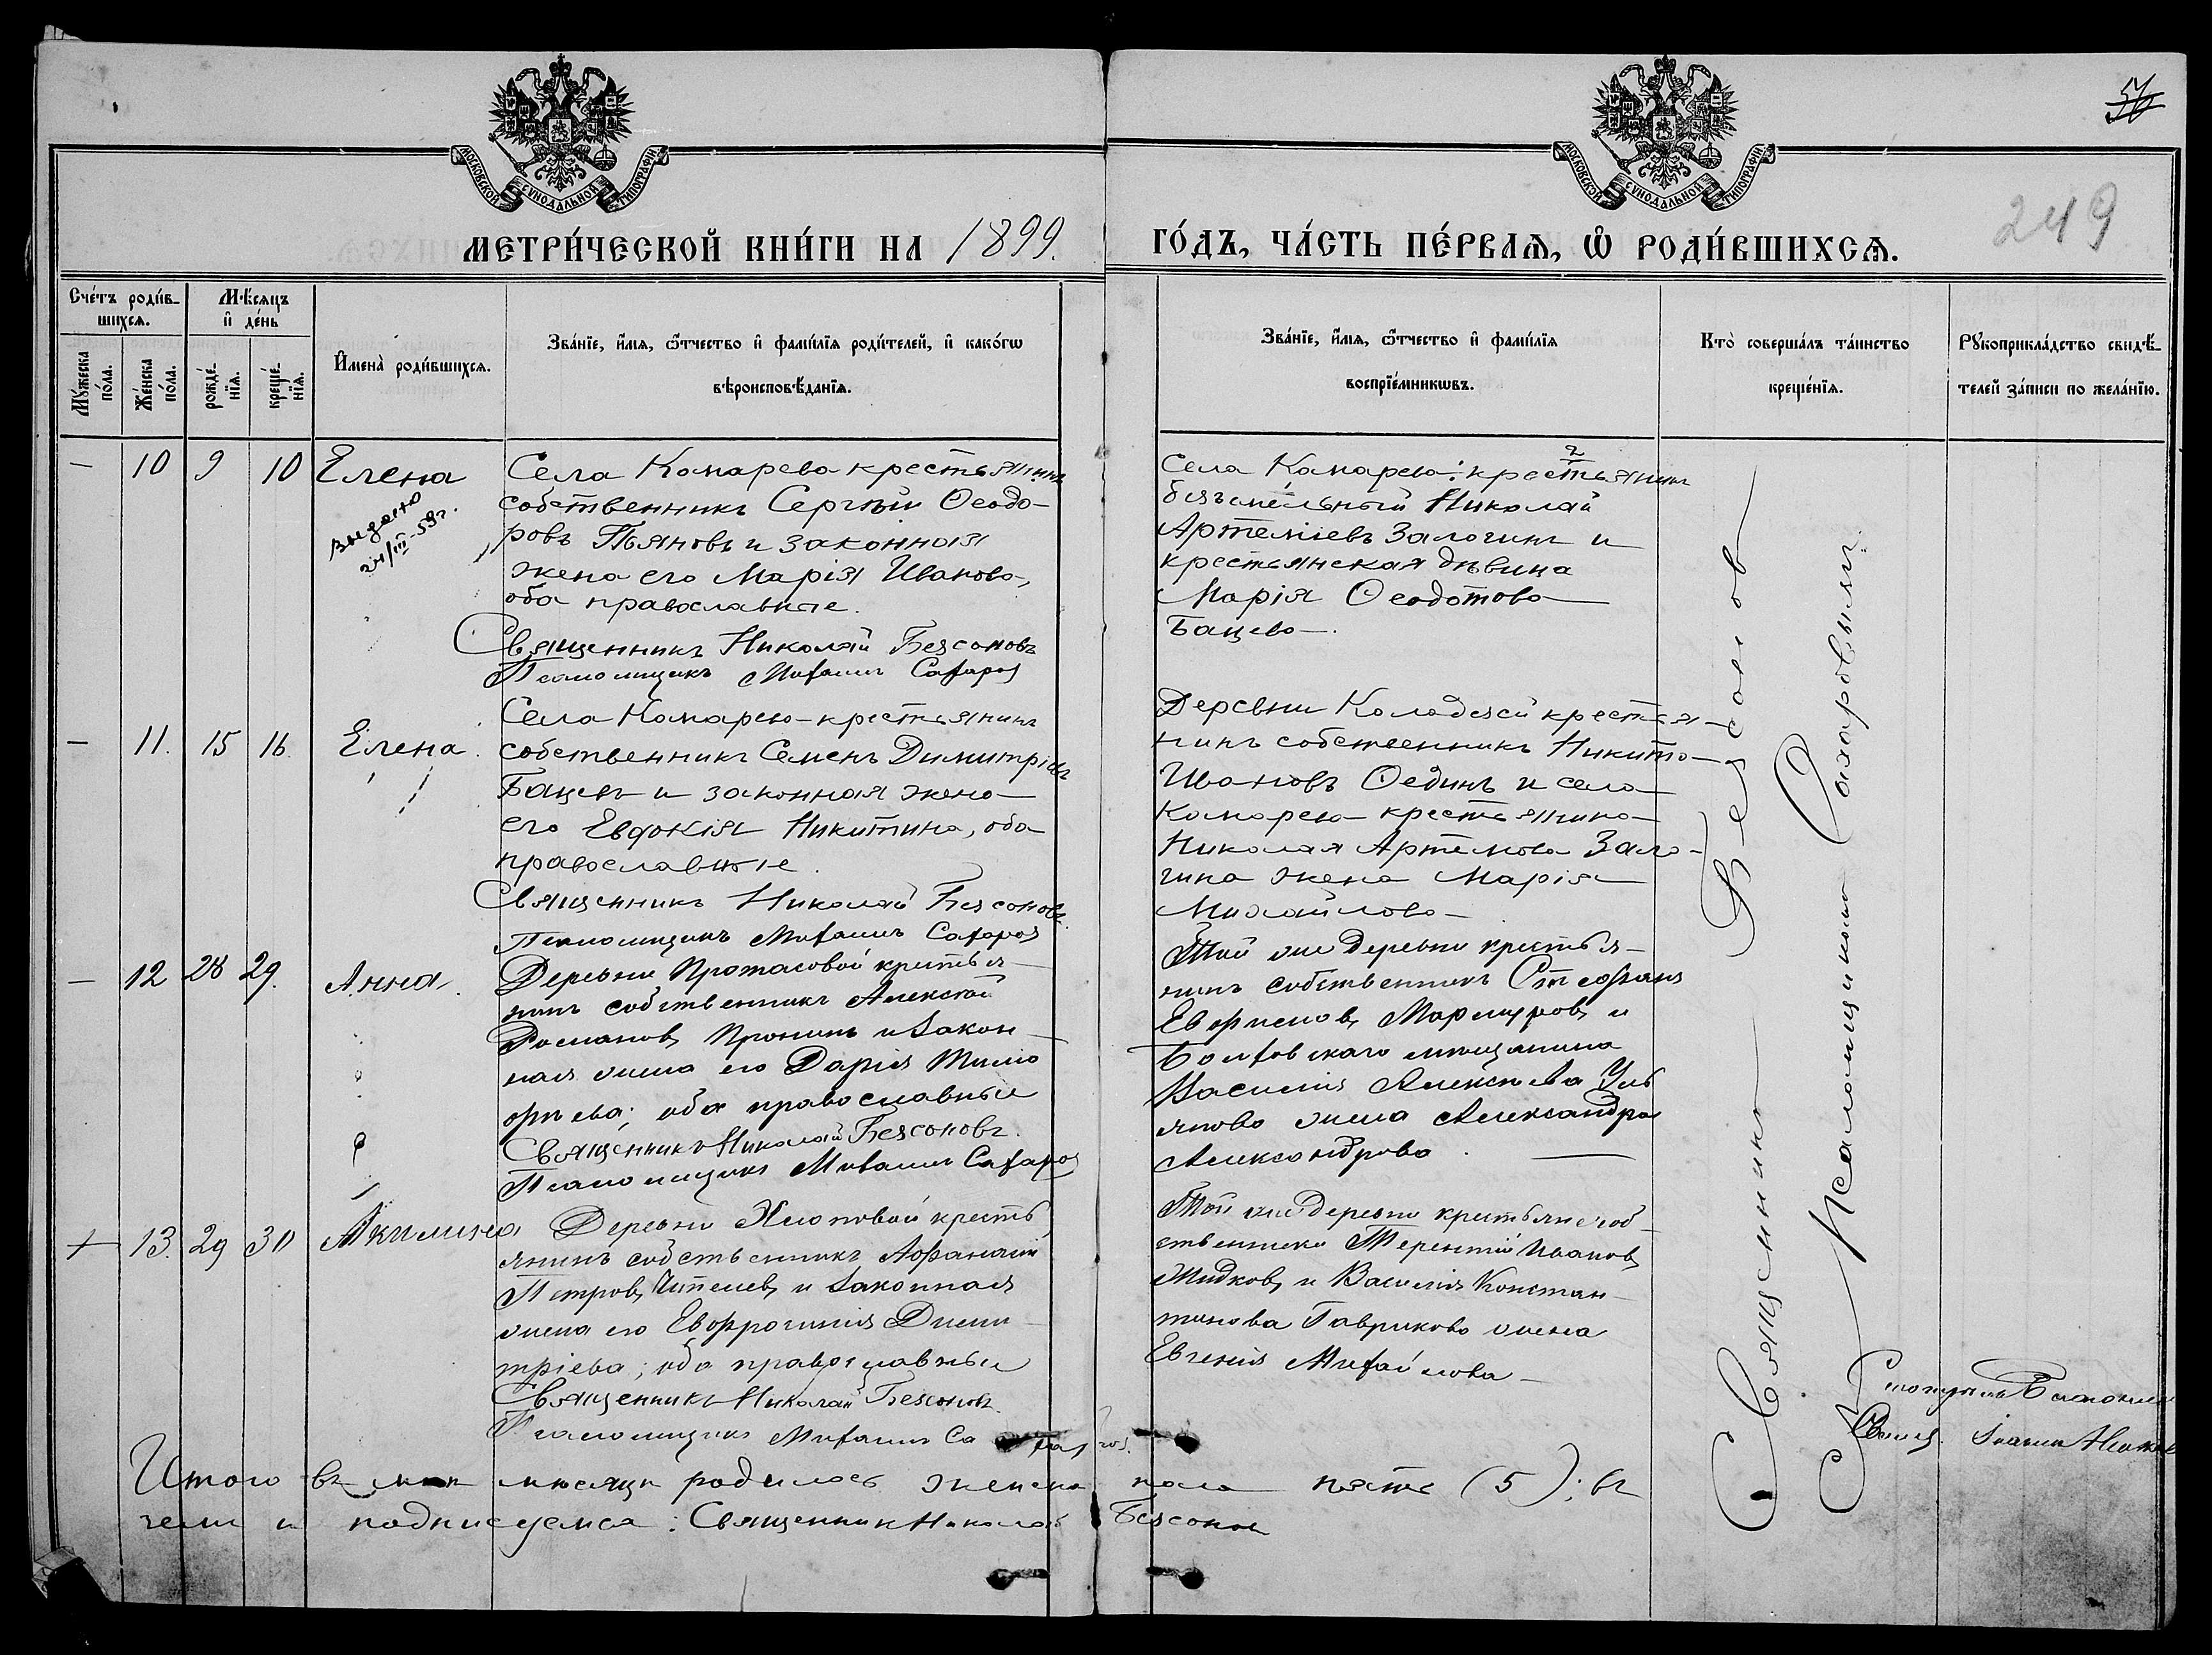 56
249
МОСКОВСКОЙ СУНОДАЛЬНОЙ ТИПОГРАФІИ
МОСКОВСКОЙ СУНОДАЛЬНОЙ ТИПОГРАФІИ
МЕТРИ́ЧЕСКОЙ КНИ́ГИ НА 1899. ГО́ДЪ, ЧА́СТЬ ПЕ́РВАѦ, Ѡ РОДИ́ВШИХСѦ.
Сче́тъ роди́в-
шихсѧ.
Мꙋ́жеска по́ла.
Же́нска по́ла.
Мѣ́сѧцъ и де́нь
рожде́нїѧ.
креще́нїѧ.
И҆мена̀ роди́вшихсѧ.
Зва́нїе, и҆́мѧ, ѻ҆́тчество и҆ фами́лїѧ роди́телей, и҆ како́гѡ
вѣроисповѣ́данїѧ.
Зва́нїе, и҆́мѧ, ѻ҆́тчество и҆ фами́лїѧ
воспрїе́мникѡвъ.
Кто̀ соверша́лъ та́инство
креще́нїѧ.
Рꙋкоприкла́дство свидѣ́-
телей за́писи по жела́нїю.
— 10 9 10 Елена
выдано
24/III-59г.
Села Комарева крестьянинъ
собственникъ Сергѣй Ѳеодо-
ровъ Пьяновъ и законная
жена его Марія Иванова,
оба православные.
Священникъ Николай Безсоновъ
Псаломщикъ Михаилъ Сахаров
Села Комарева: крестьянинъ
безземельный Николай
Артеміевъ Залогинъ и
крестьянская дѣвица
Марія Ѳеодотова
Бацева.
— 11. 15 16. Елена.
Села Комарева крестьянинъ
собственникъ Семенъ Димитріевъ
Бацевъ и законная жена
его Евдокія Никитина, оба
православные.
Священникъ Николай Безсоновъ.
Псаломщикъ Михаилъ Сахаров
Деревни Колодезей крестья-
нинъ собственникъ Никита
Ивановъ Ѳединъ и села
Комарева крестьянина
Николая Артемова Зало-
гина жена Марія
Михайлова
— 12 28 29. Анна.
Деревни Протасовой крестья-
нинъ собственникъ Алексей
Романовъ Пронинъ и закон-
ная жена его Дарія Тимо
ѳеева; оба православные
Священникъ Николай Безсоновъ.
Псаломщикъ Михаилъ Сахаров
Той же деревни крестья-
нинъ собственникъ Стефанъ
Евфимовъ и
Болховскаго мещанина
Василія Алексѣева Уль
янова жена Александра
Александрова.
13. 29 30 Акилина
Деревни Хлоповой кресть
янинъ собственникъ Аѳанасій
Петровъ и законная
жена его Евфросинія Дими-
тріева; оба православные
Священникъ Николай Безсоновъ.
Псаломщикъ Михаилъ Сахаров.
Той же деревни крестьяне соб-
ственники Терентій Ивановъ
Жидковъ и Василія Констан-
тинова Гаврикова жена
Евгенія Михайлова
Священникъ Безсонов
Съ Псаломщикомъ Сахаровымъ.
Итого въ мае месяце родилось женска пола пять (5); въ
чемъ и подписуемся: Священник Николай Безсонов